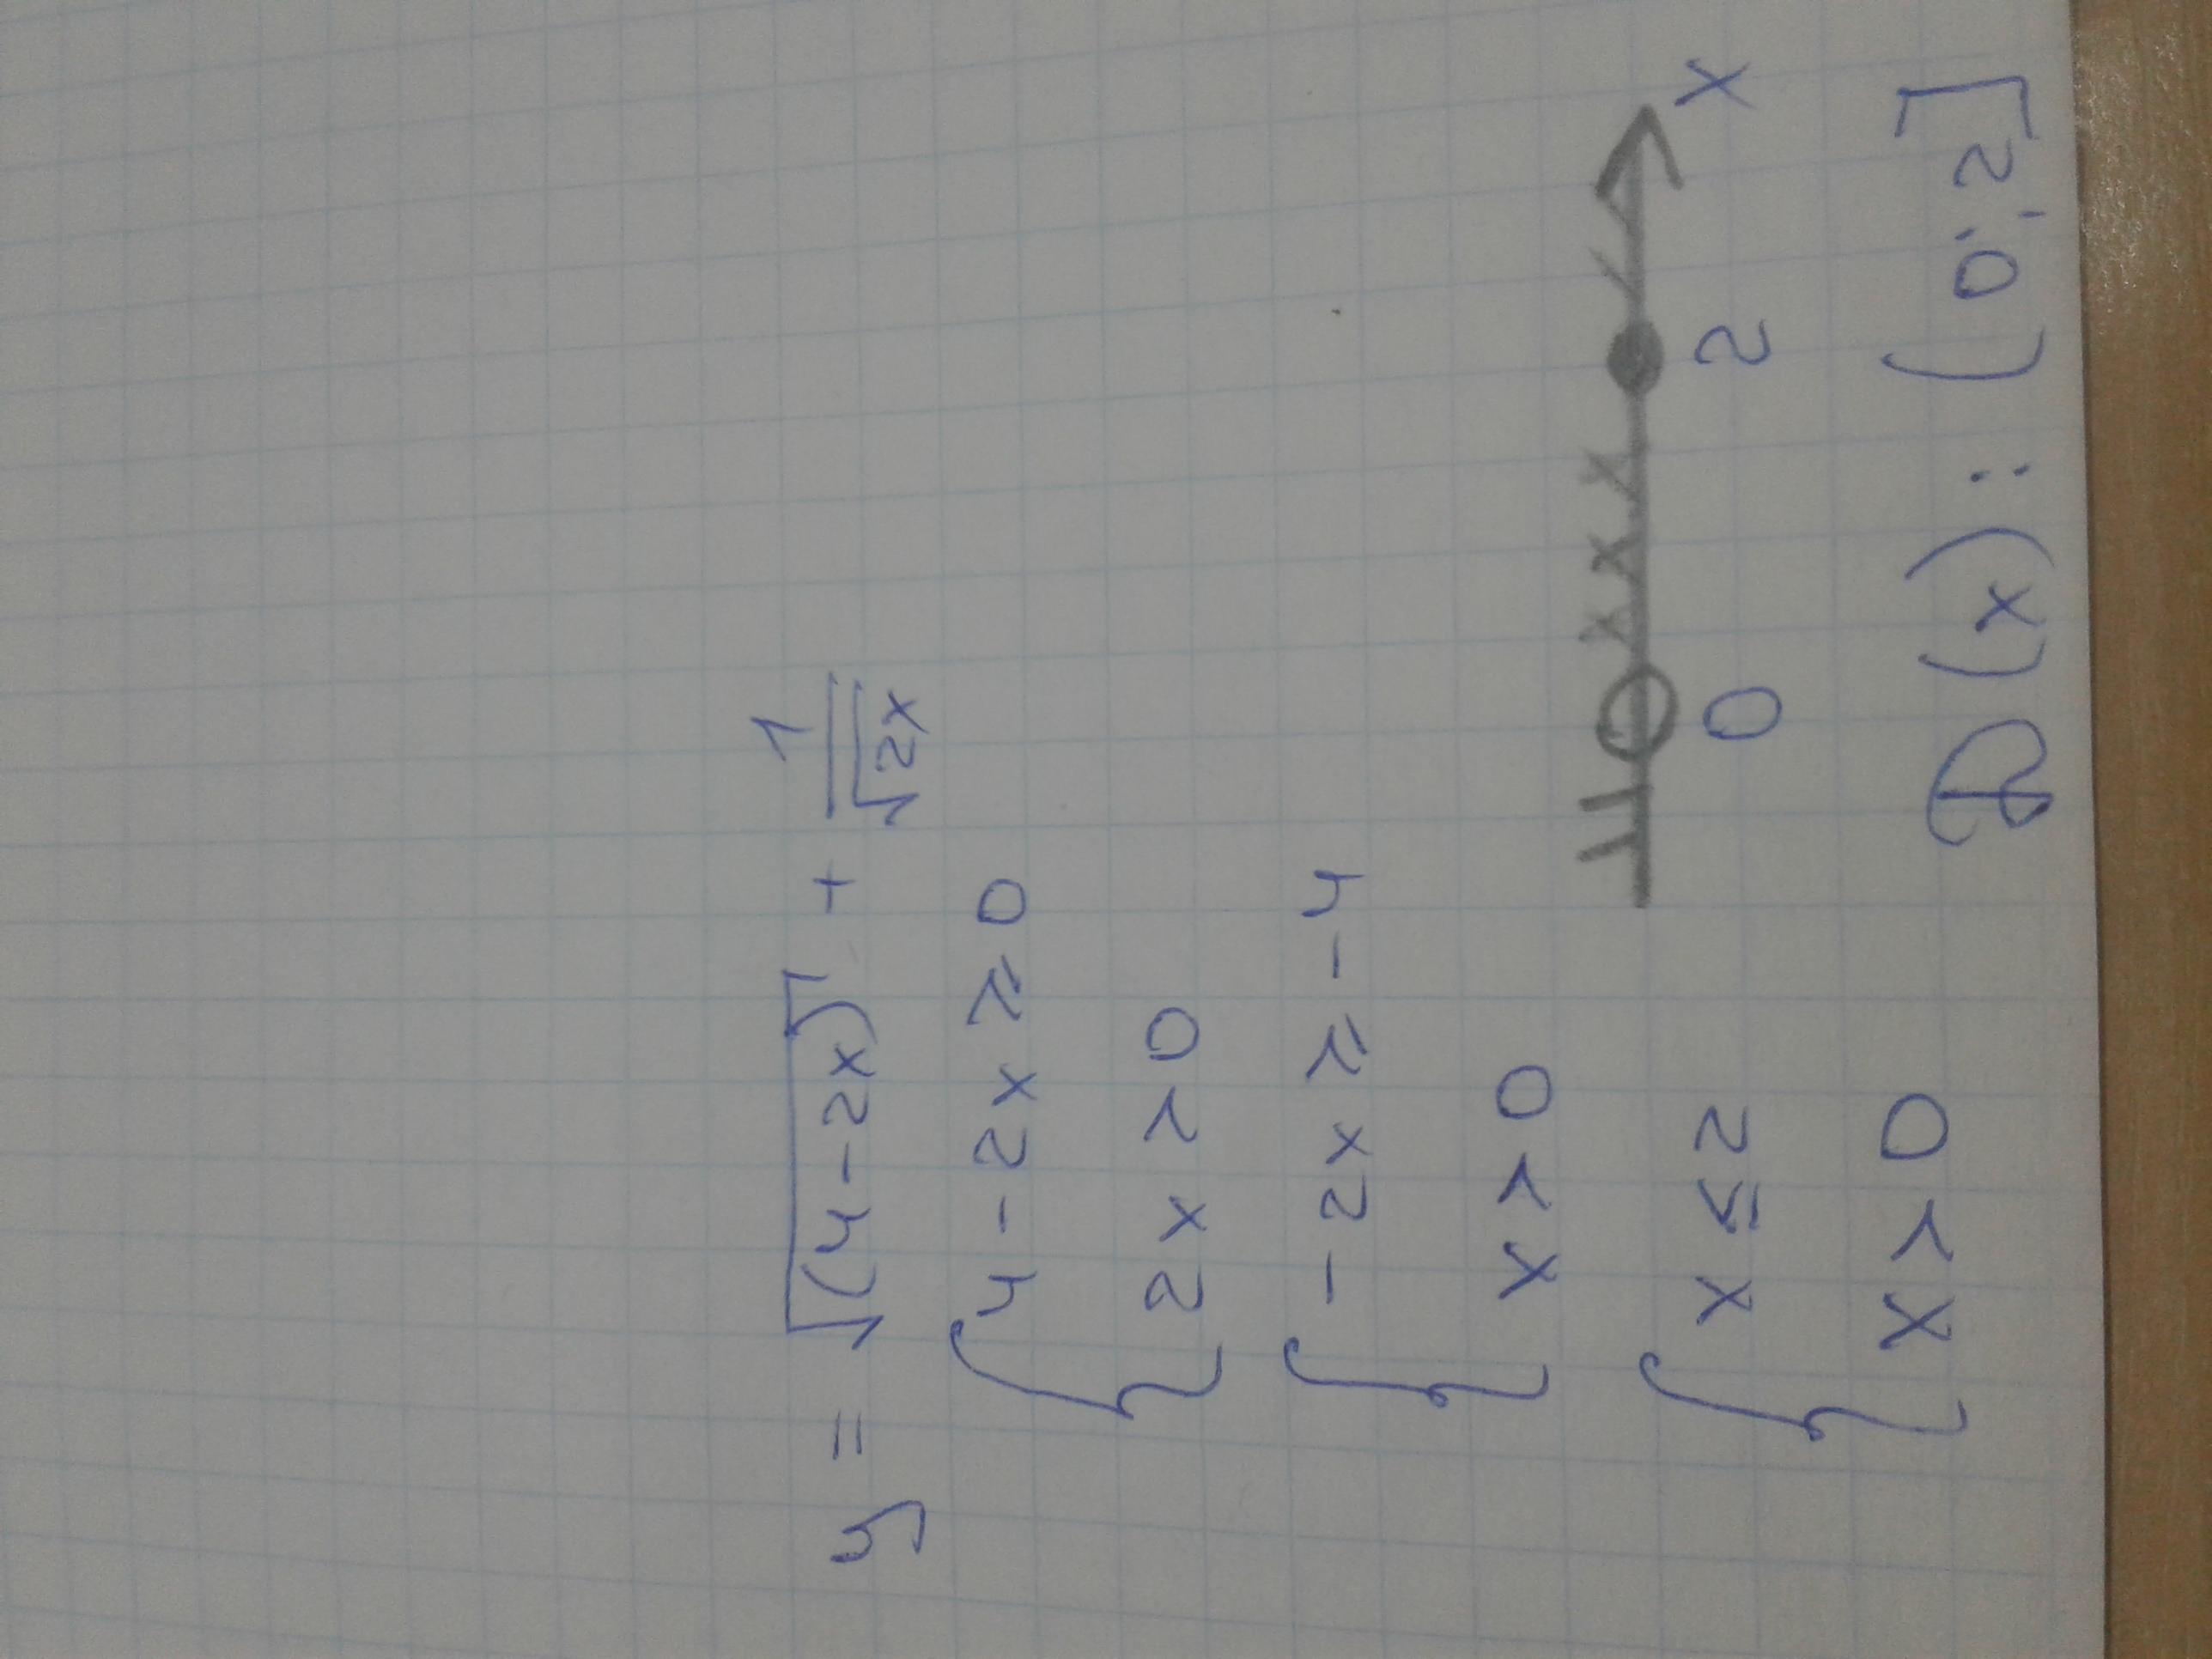 y = √(4-2x) + 1/√2x
{ 4 - 2x ≥ 0
2x > 0
{ -2x ≥ -4
x > 0
{ x ≤ 2
x > 0
0 2 x
D(x) : (0;2]